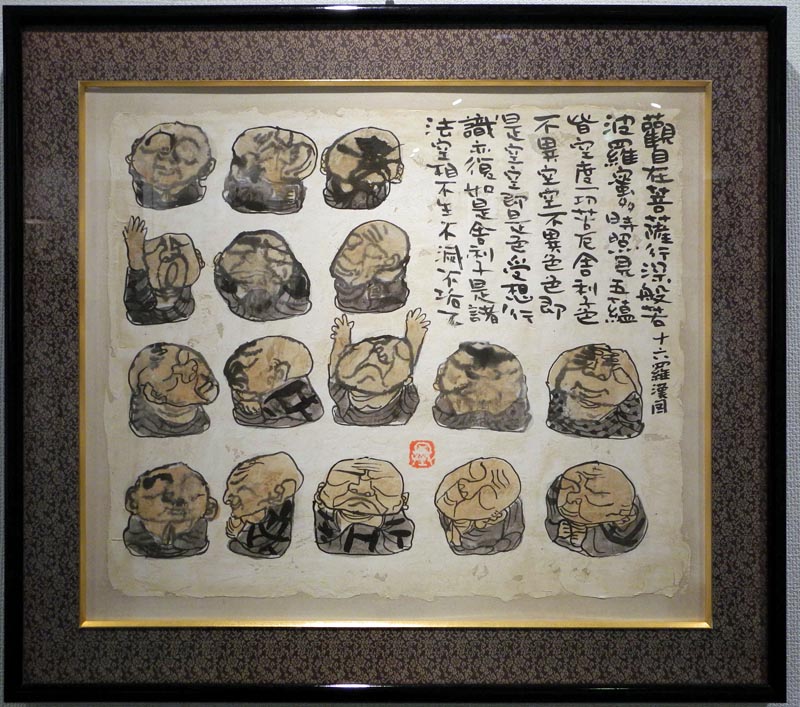 觀自在菩薩行深般若
波羅蜜多時照見五蘊
皆空度一切苦厄舍利子色
不異空空不異色色即
是空空即是色受想行
識亦復如是舍利子是諸
法空相不生不滅不垢不
十六羅漢図